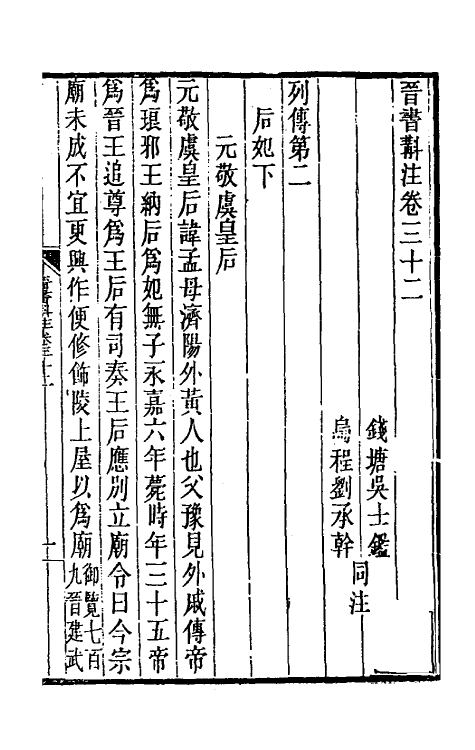 晉書斠注卷三十二
錢塘吳士鑑
烏程劉承幹
同注
列傳第二
后妃下
元敬虞皇后
元敬虞皇后諱孟母濟陽外黃人也父豫見外戚傳帝
爲琅邪王納后爲妃無子永嘉六年薨時年三十五帝
爲晉王追尊爲王后有司奏王后應別立廟令曰今宗
廟未成不宜更興作便修飾陵上屋以爲廟
御覽七百
九晉建武
晉書斠注卷三十二
一